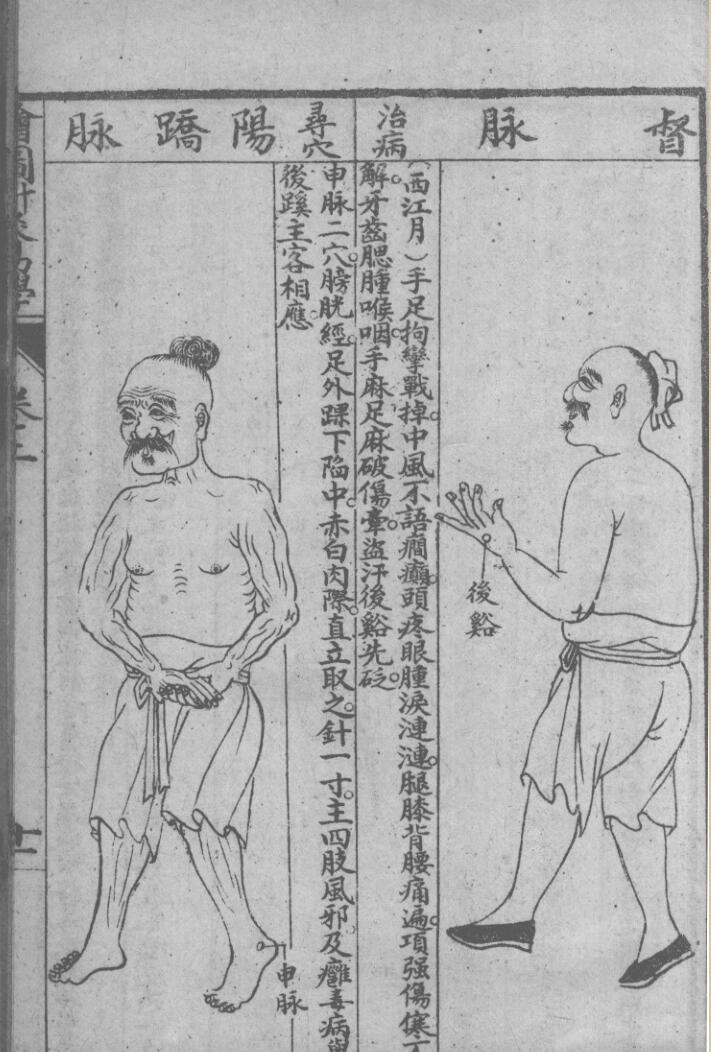 督脉
後谿
治病
（西江月）手足拘攣戰掉。中風不語癇癲。頭疼眼腫淚漣漣。腿膝背腰痛遍。項强傷寒不
解。牙齒腮腫喉咽。手麻足麻破傷牽。盜汗後谿先砭。
尋穴
申脉二穴。膀胱經。足外踝下陷中。赤白肉際。直立取之。針一寸。主四肢風邪。及癰毒病。與
後蹊主客相應。
陽蹻脉
申脉
卷二